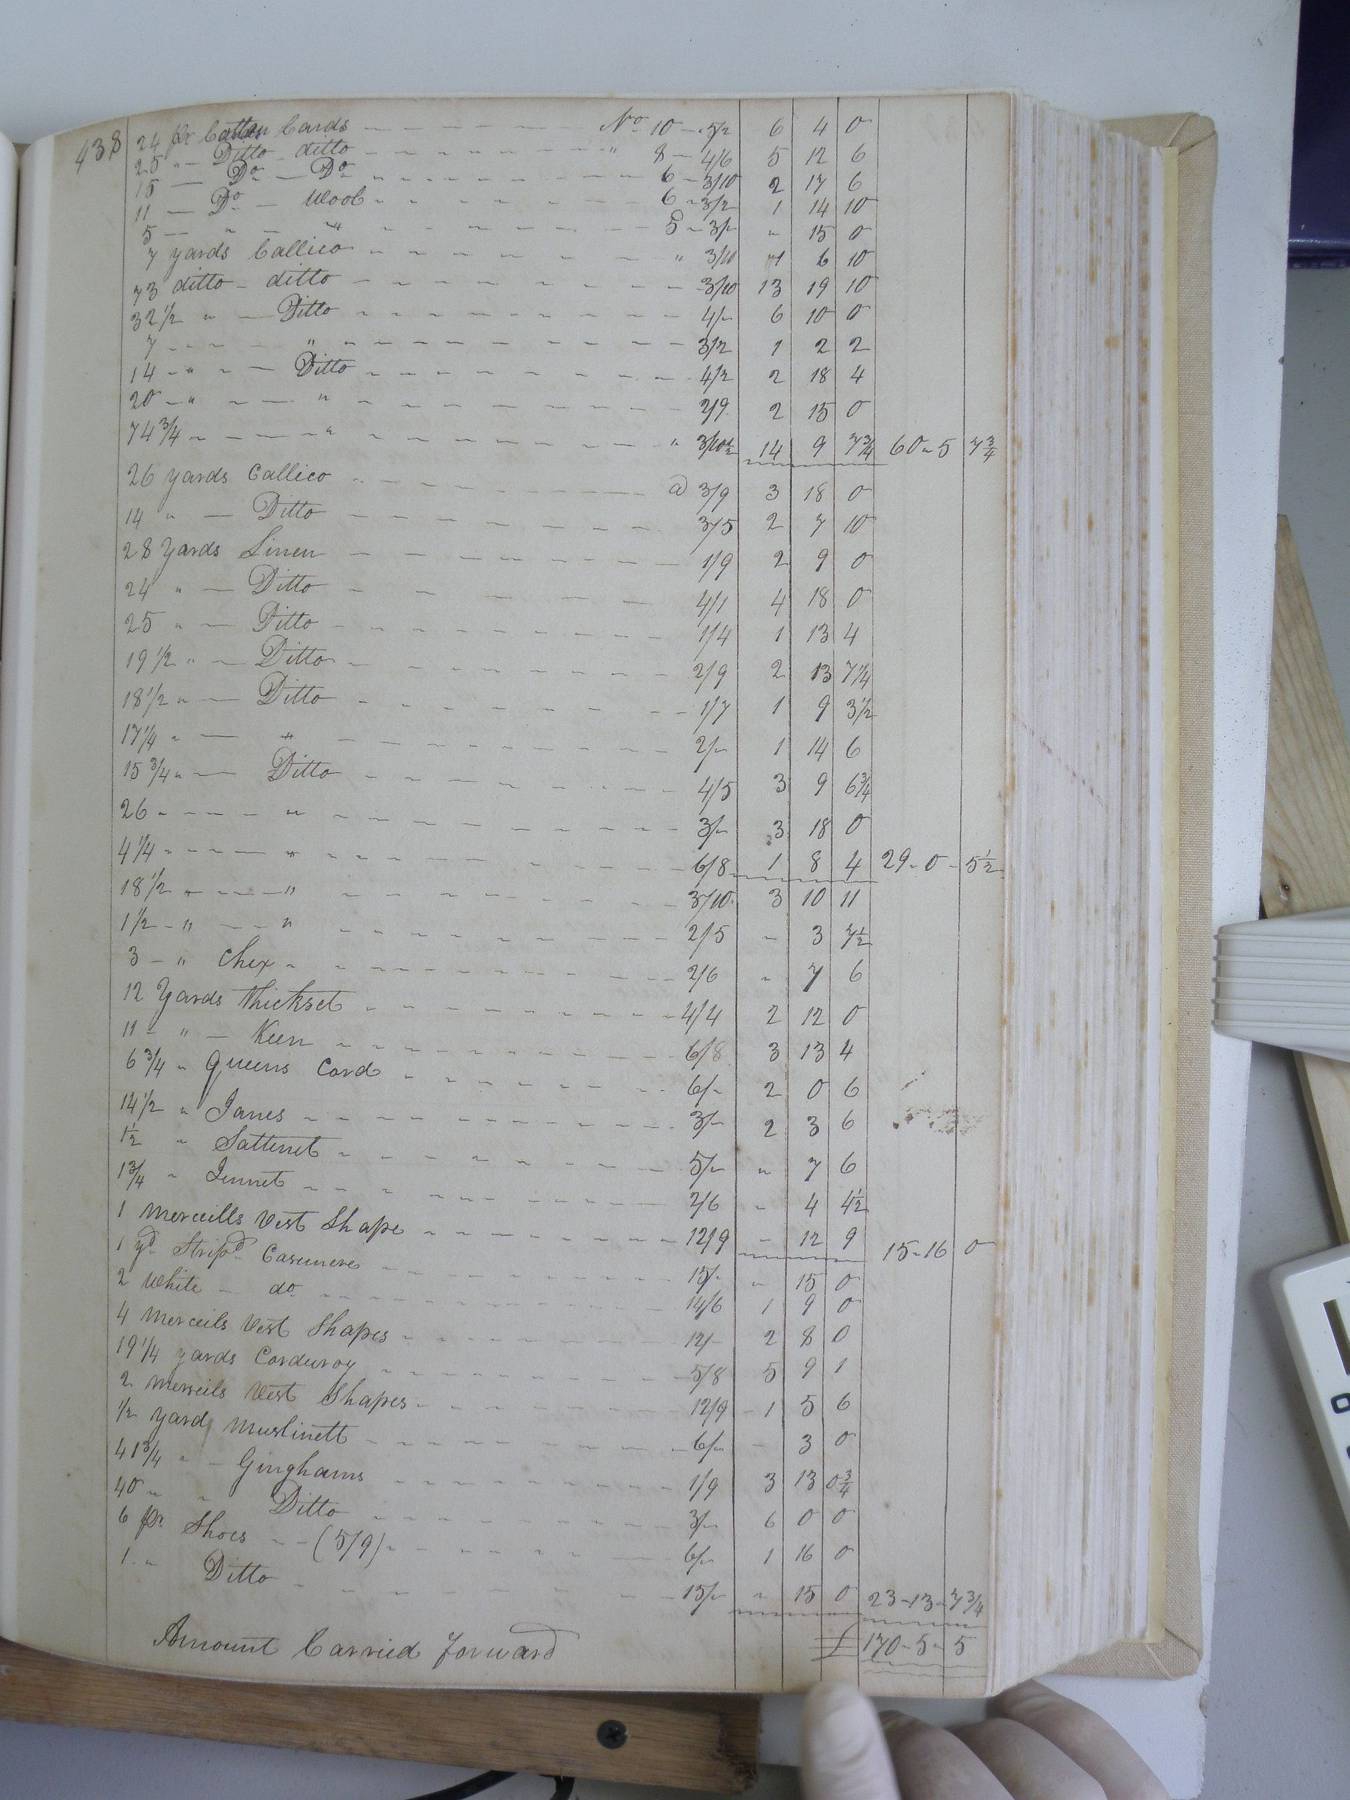 438
24 pr Cotten Cards No 10 - 5/2 6 4 0
25 " Ditto ditto " 8 - 4/6 5 12 6
15 — Do — Do 6 - 3/10 2 17 6
11 — Do — Wool 6 - 3/2 1 14 10
5 — " " 5 - 3/- " 15 0
7 yards Callico " 3/10 1 6 10
73 ditto - ditto 3/10 13 19 10
32 1/2 " — Ditto 4/- 6 10 0
7 " 3/2 1 2 2
14 " " — Ditto 4/2 2 18 4
20 " — " 2/9 2 15 0
74 3/4 " " 3/10 1/2 14 9 7 3/4 60 - 5 7 3/4
26 yards Callico @ 3/9 3 18 0
14 " — Ditto 3/5 2 7 10
28 Yards Linen 1/9 2 9 0
24 " — Ditto 4/1 4 18 0
25 " — Ditto 1/4 1 13 4
19 1/2 " — Ditto 2/9 2 13 7 1/4
18 1/2 " — Ditto 1/7 1 9 3 1/2
17 1/4 " — " 2/- 1 14 6
15 3/4 " — Ditto 4/5 3 9 6 3/4
26 " 3/- 3 18 0
4 1/4 " 6/8 1 8 4 29 - 0 - 5 1/2
18 1/2 " 3/10 3 10 11
1 1/2 - " — " 2/5 " 3 7 1/2
3 - " Chex 2/6 " 7 6
12 Yards Thickset 4/4 2 12 0
11 - " — Keen 6/8 3 13 4
6 3/4 " Queens Cord 6/- 2 0 6
14 1/2 " Janes 3/- 2 3 6
1 1/2 " Sattinet 5/- " 7 6
1 3/4 " Jennet 2/6 " 4 4 1/2
1 Merceills Vest Shape 12/9 - 12 9 15 - 16 0
1 yd Stripd Casimere 15/- " 15 0
2 White — do 14/6 1 9 0
4 Merceils Vest Shapes 12/- 2 8 0
19 1/4 yards Corduroy 5/8 5 9 1
2 Merseils Vest Shapes 12/9 1 5 6
1/2 Yard Muslinett 6/- - 3 0
41 3/4 " - Ginghams 1/9 3 13 0 3/4
40 " " Ditto 3/- 6 0 0
6 pr Shoes - - (5/9) 6/- 1 16 0
1 " Ditto 15/- " 15 0 23 - 13 - 7 3/4
Amount Carried Forward £ 170 - 5 - 5